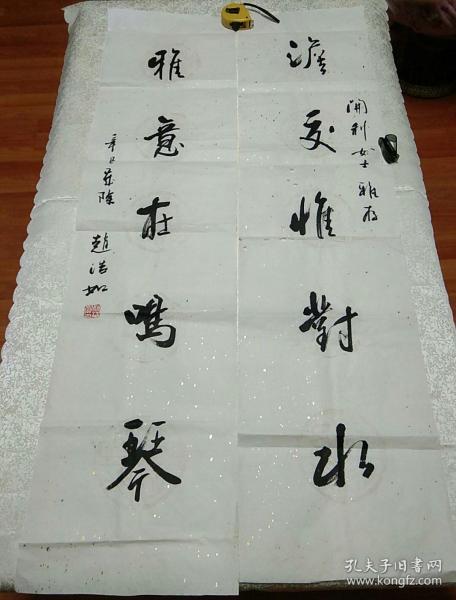 開利女士雅存
澹交惟對水
雅意在鳴琴
辛巳歲除
趙浩如
孔夫子旧书网
www.kongfz.com